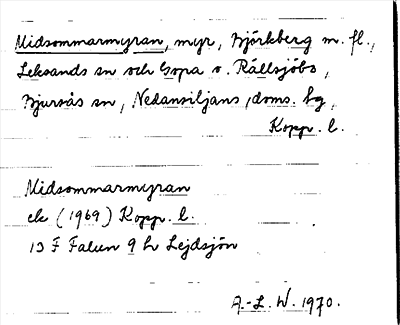 Midsommarmyran, myr, Björkberg m. fl.,
Leksands sn och Gopa o. Rällsjöbo,
Bjursås sn, Nedansiljans doms. hg,
Kopp. l.
Midsommarmyran
ek (1969) Kopp. l.
13 F Falun 9 h Lejdsjön
A.-L. W. 1970.